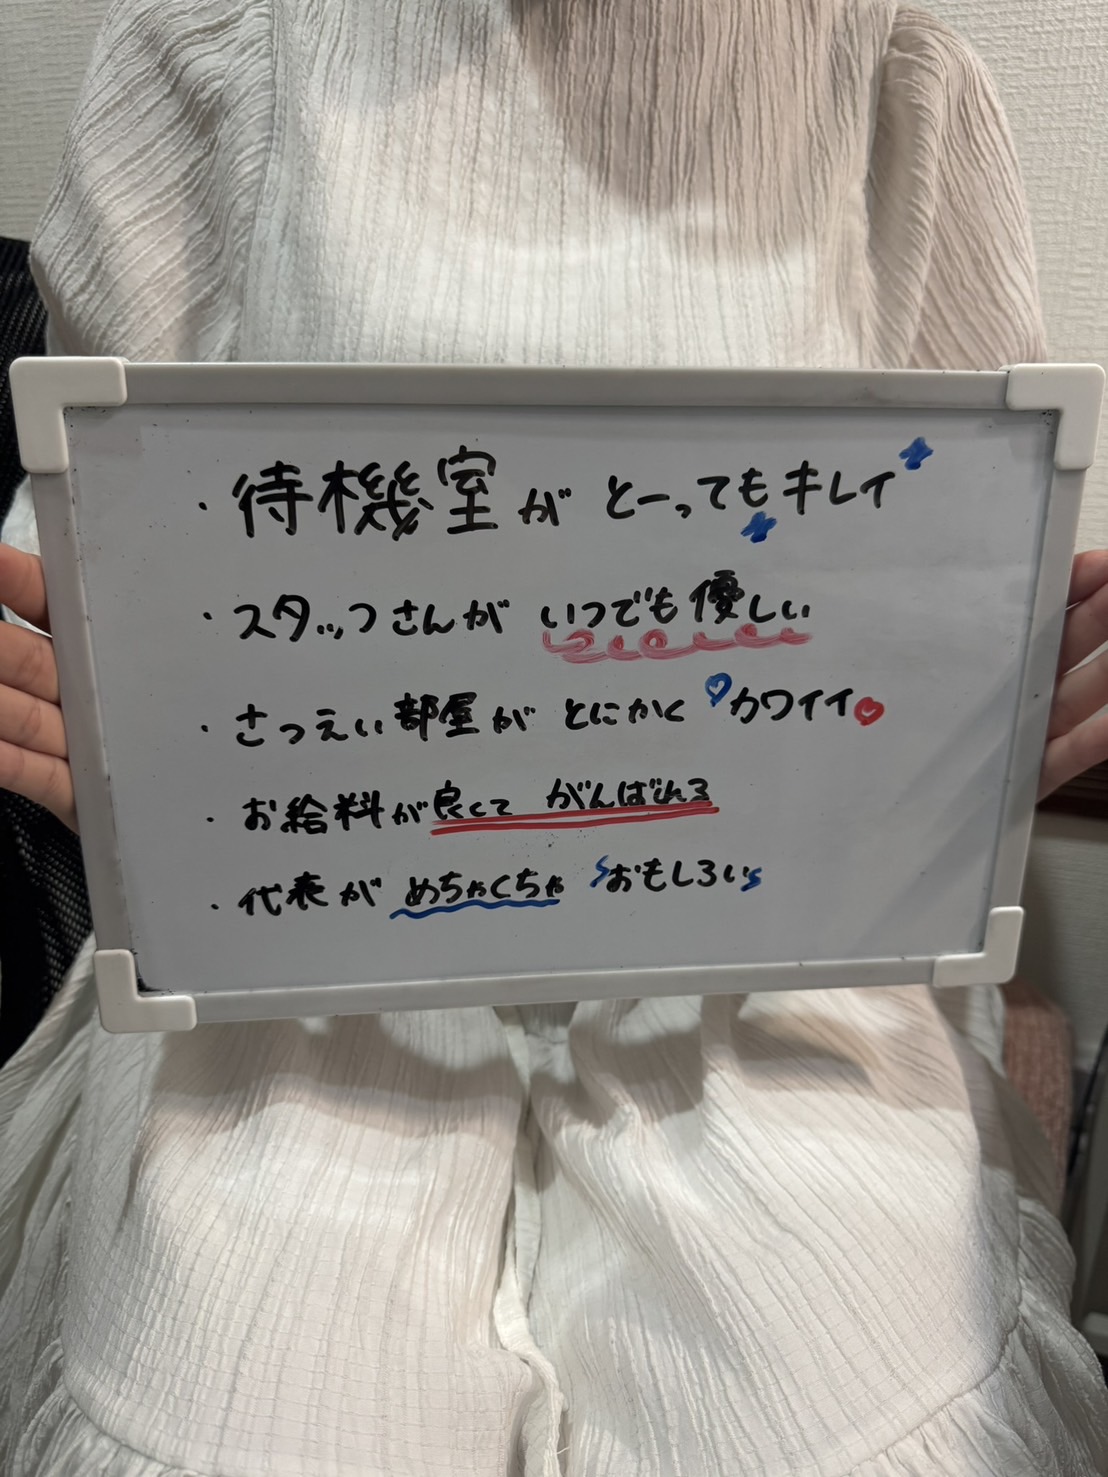 ・待機室がとーってもキレイ
・スタッフさんがいつでも優しい
・さつえい部屋がとにかくカワイイ
・お給料が良くて がんばれる
・代表がめちゃくちゃおもしろい